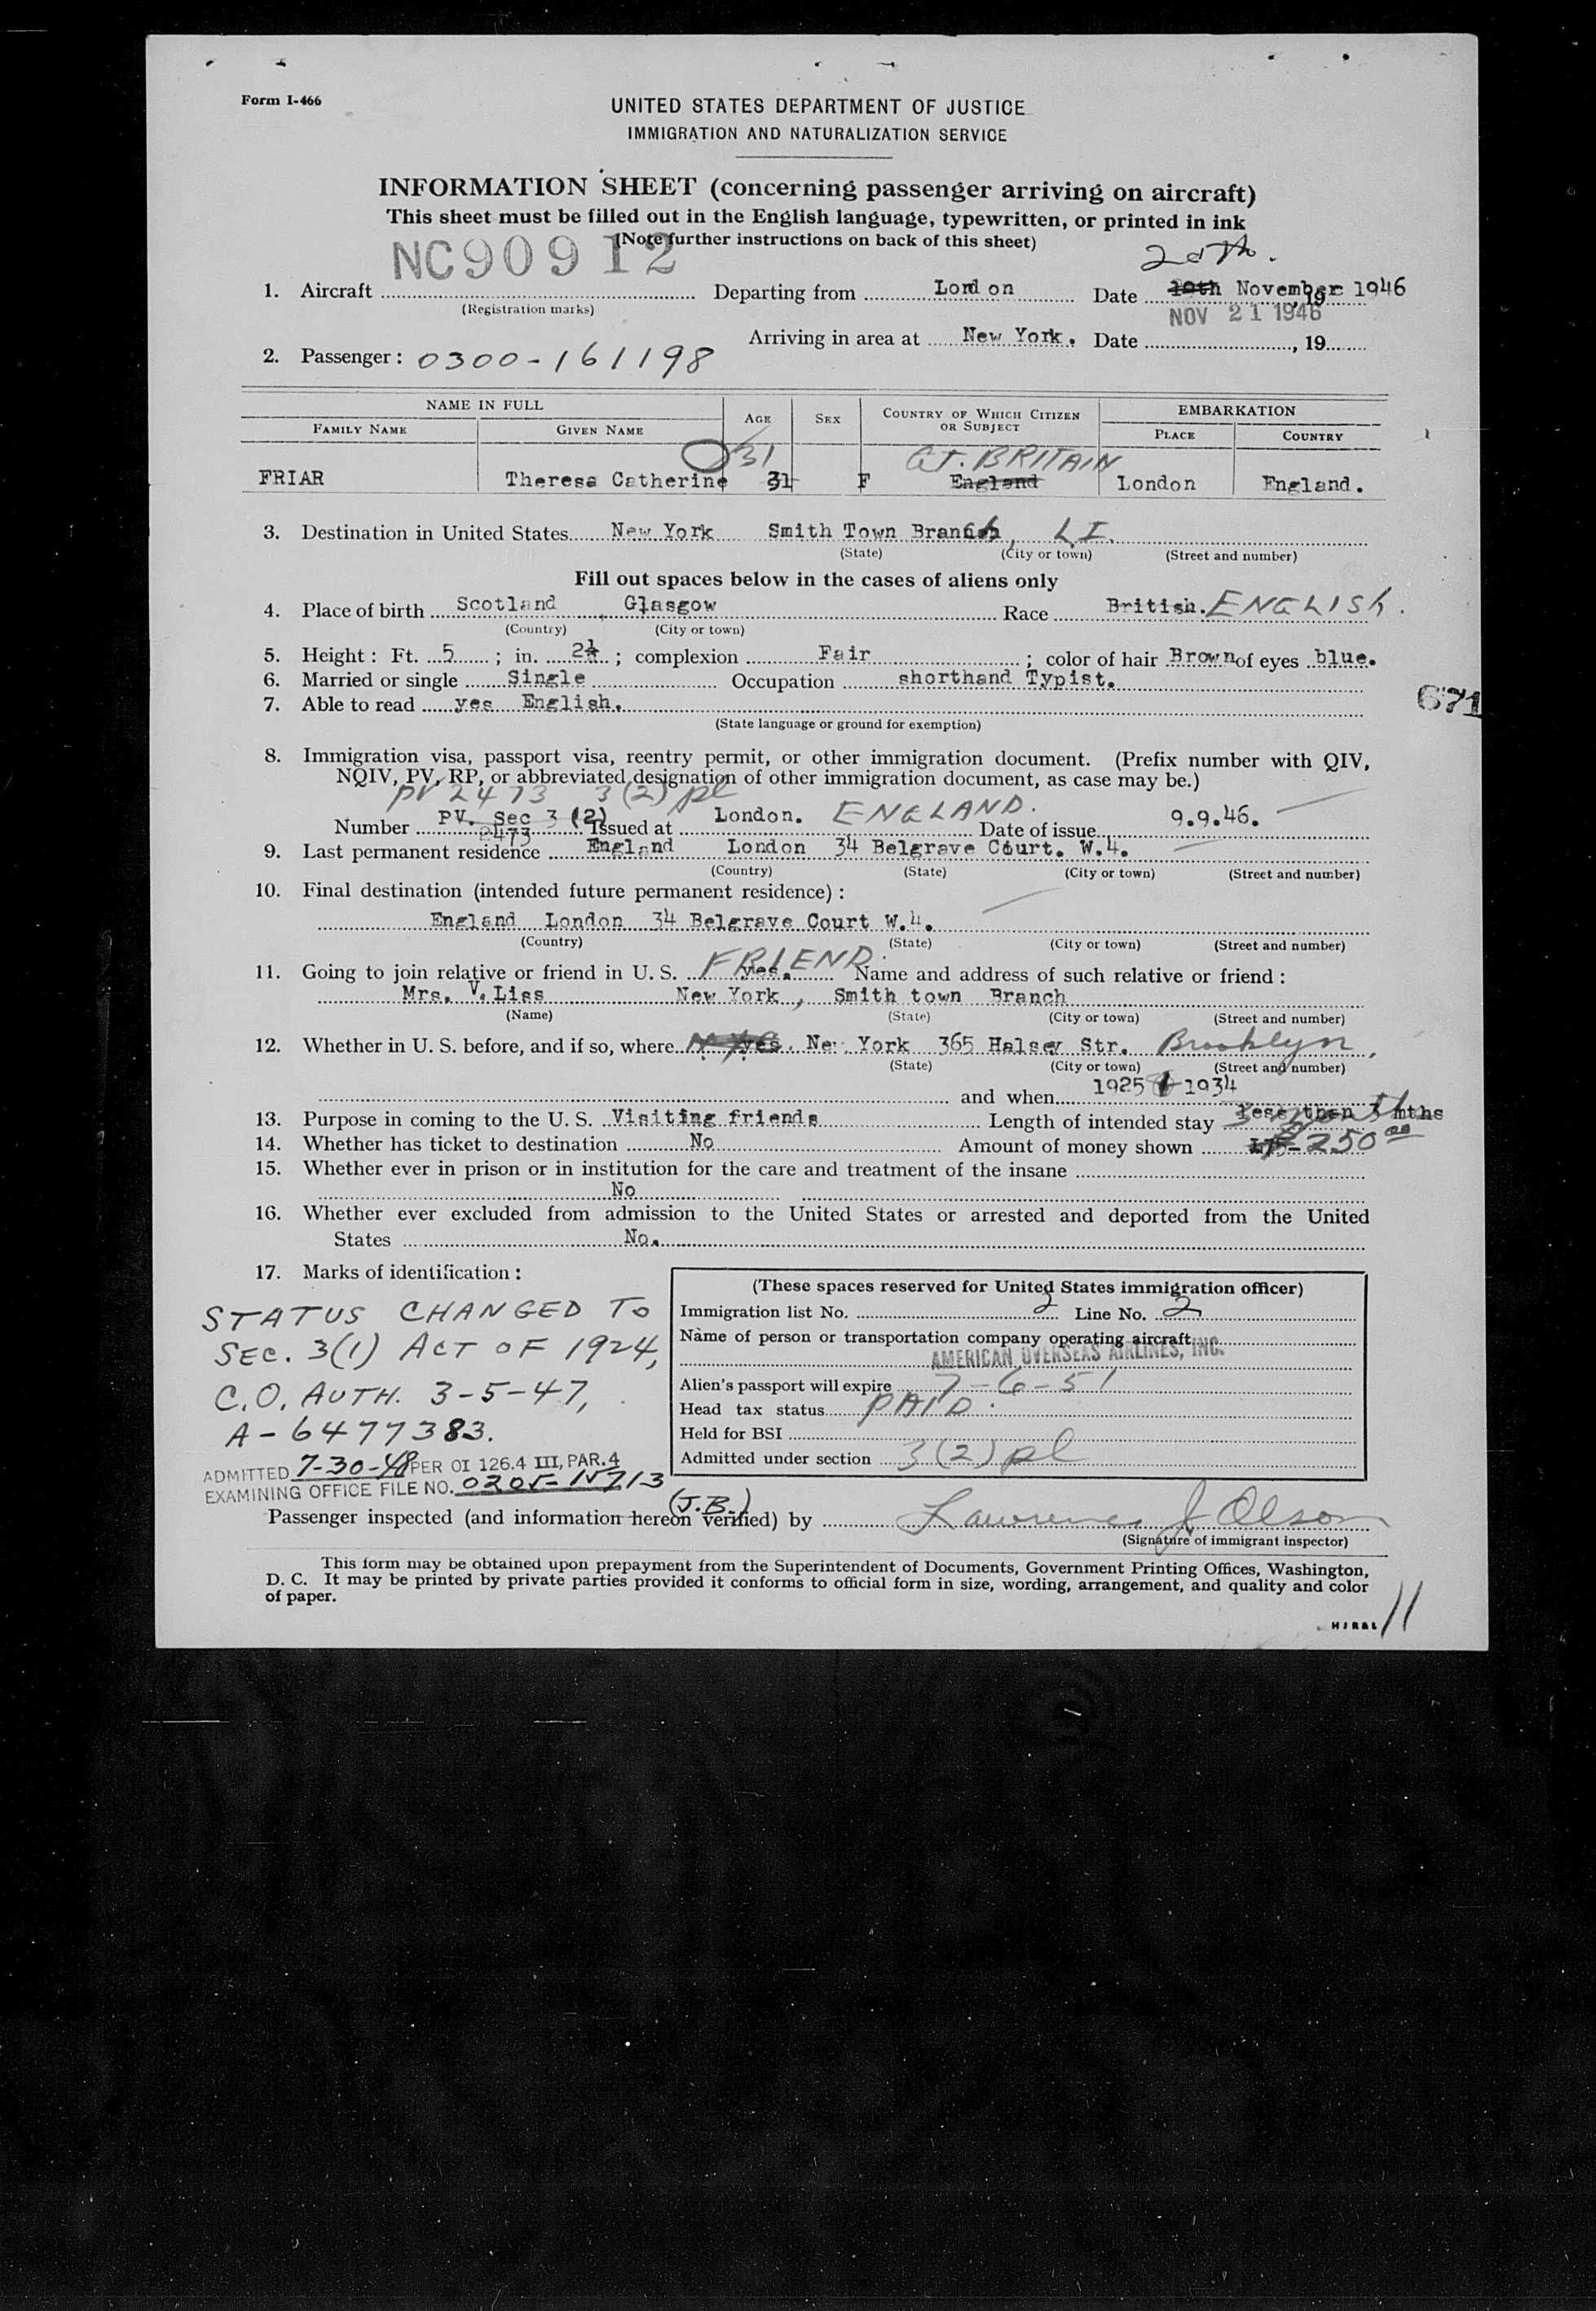 Form I-466
UNITED STATES DEPARTMENT OF JUSTICE
IMMIGRATION AND NATURALIZATION SERVICE
INFORMATION SHEET (concerning passenger arriving on aircraft)
This sheet must be filled out in the English language, typewritten, or printed in ink
(Note further instructions on back of this sheet)
NC90912
20th.
1. Aircraft Departing from London Date 19th November 1946, 19
(Registration marks)
NOV 21 1946
Arriving in area at New York. Date , 19
2. Passenger: 0300-161198
NAME IN FULL AGE SEX COUNTRY OF WHICH CITIZEN OR SUBJECT EMBARKATION
FAMILY NAME GIVEN NAME PLACE COUNTRY
31 GT. BRITAIN
FRIAR Theresa Catherine 31 F England London England.
3. Destination in United States New York Smith Town Branch, L.I.
(State) (City or town) (Street and number)
Fill out spaces below in the cases of aliens only
4. Place of birth Scotland, Glasgow Race British. ENGLISH.
(Country) (City or town)
5. Height: Ft. 5; in. 2½; complexion Fair; color of hair Brown of eyes blue.
6. Married or single Single Occupation shorthand Typist.
7. Able to read yes English.
671
(State language or ground for exemption)
8. Immigration visa, passport visa, reentry permit, or other immigration document. (Prefix number with QIV,
NQIV, PV, RP, or abbreviated designation of other immigration document, as case may be.)
PV 2473 3(2) pl
Number PV. Sec 3 (2) 2473 Issued at London. ENGLAND. Date of issue 9.9.46.
9. Last permanent residence England London 34 Belgrave Court. W.4.
(Country) (State) (City or town) (Street and number)
10. Final destination (intended future permanent residence):
England London 34 Belgrave Court W.4.
(Country) (State) (City or town) (Street and number)
11. Going to join relative or friend in U. S. yes. FRIEND. Name and address of such relative or friend:
Mrs. V. Liss New York, Smith town Branch
(Name) (State) (City or town) (Street and number)
12. Whether in U. S. before, and if so, where yes. New York 365 Halsey Str. Brooklyn,
(State) (City or town) (Street and number)
and when 1925 1934
13. Purpose in coming to the U. S. Visiting friends Length of intended stay less than 3 mths
14. Whether has ticket to destination No Amount of money shown 250 00
15. Whether ever in prison or in institution for the care and treatment of the insane
No
16. Whether ever excluded from admission to the United States or arrested and deported from the United
States No.
17. Marks of identification:
STATUS CHANGED TO
SEC. 3(1) ACT OF 1924,
C.O. AUTH. 3-5-47,
A-6477383.
ADMITTED 7-30-48 PER OI 126.4 III, PAR. 4
EXAMINING OFFICE FILE NO. 0205-15713
(J.B.)
(These spaces reserved for United States immigration officer)
Immigration list No. 2 Line No. 2
Name of person or transportation company operating aircraft
AMERICAN OVERSEAS AIRLINES, INC.
Alien's passport will expire 7-6-51
Head tax status PAID.
Held for BSI
Admitted under section 3(2) pl
Passenger inspected (and information hereon verified) by Lawrence J Olson
(Signature of immigrant inspector)
This form may be obtained upon prepayment from the Superintendent of Documents, Government Printing Offices, Washington,
D. C. It may be printed by private parties provided it conforms to official form in size, wording, arrangement, and quality and color
of paper.
HJR&L
11